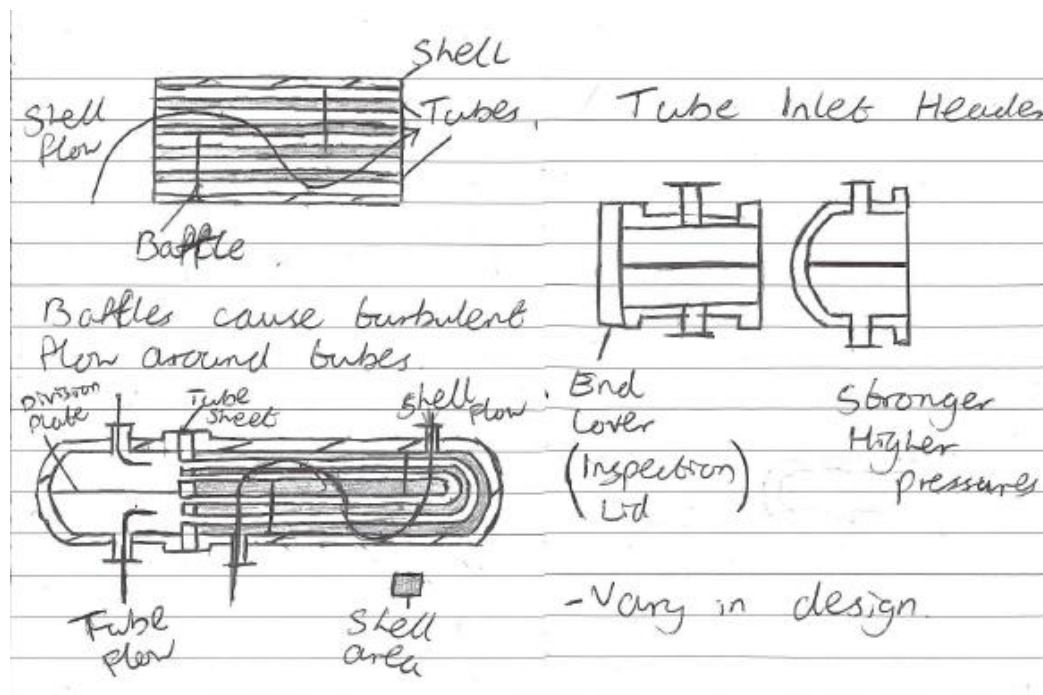 Shell
Tubes.
Shell
flow
Baffle.
Baffles cause turbulent
flow around tubes.
Division
Plate
Tube
Sheet
Shell flow
Tube
flow
Shell
area
Tube Inlet Header
End
Cover
(Inspection
Lid)
Stronger
Higher
Pressures
-Vary in design.